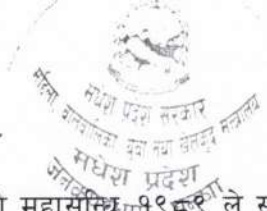 मधेश प्रदेश सरकार
महिला, बालबालिका, युवा तथा खेलकुद मन्त्रालय
मधेश प्रदेश
महासन्धि १९८९ ले